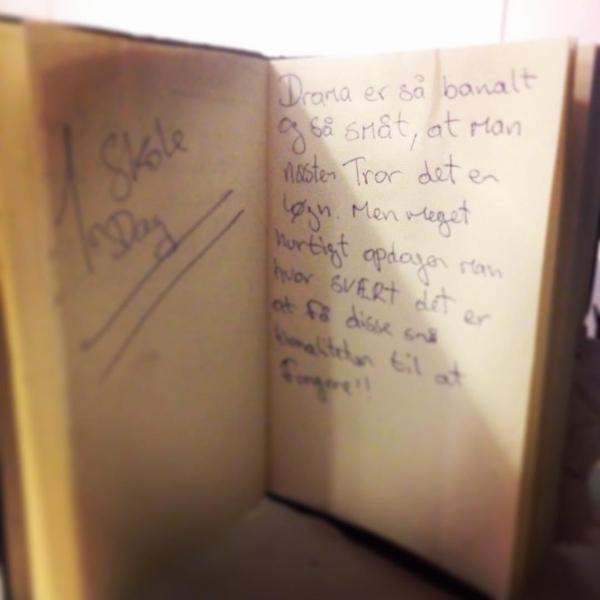 1 Skole
Dag
Drama er så banalt
og så småt, at man
næsten Tror det er
Løgn. Men meget
hurtigt opdager man
hvor SVÆRT det er
at få disse små
banaliteter til at
fungere!!